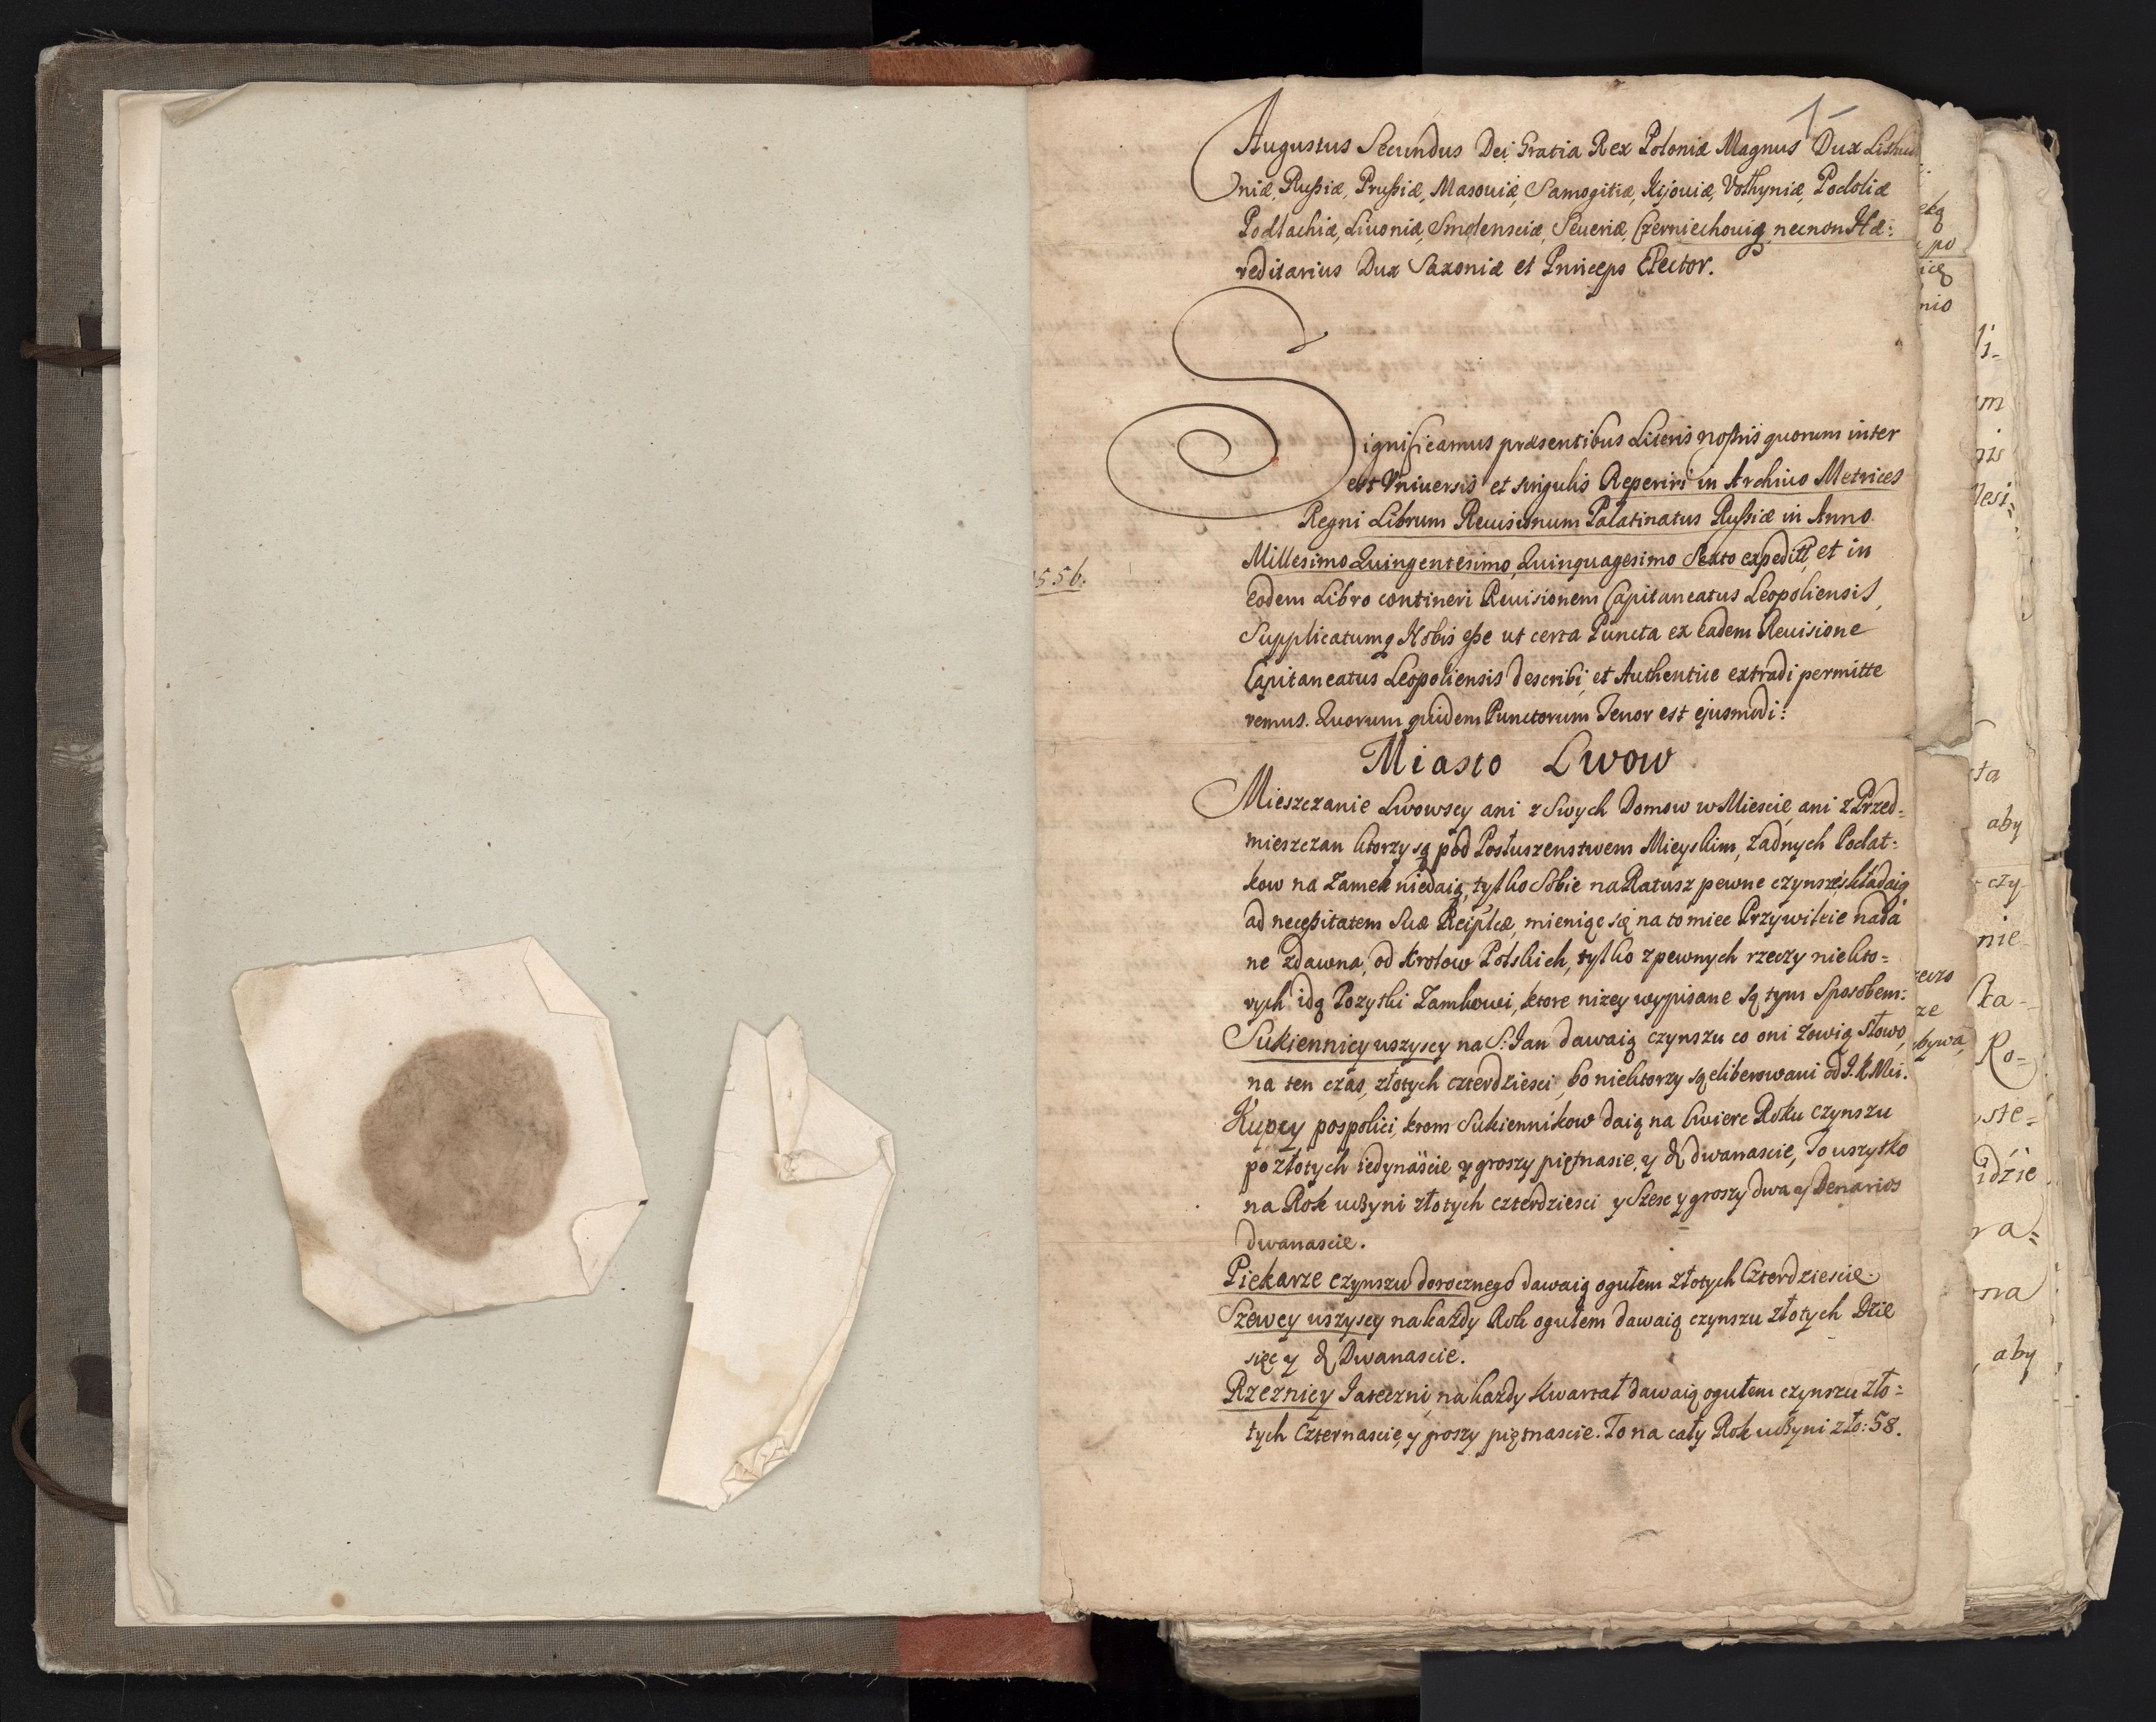 1
Augustus Secundus Dei Gratia Rex Poloniæ Magnus Dux Lithua
niæ, Rußiæ, Prußiæ, Masoviæ, Samogitiæ, Kijoviæ, Volhyniæ, Podoliæ
Podlachiæ, Livoniæ, Smolensciæ, Severiæ, Czerniechoviæ, necnon Hæ:
reditarius Dux Saxoniæ et Princeps Elector.
Significamus præsentibus Literis nostris quorum inter
est Vniversis et singulis Reperiri in Archivo Metrices
Regni Librum Revisionum Palatinatus Rußiæ in Anno
Millesimo Quingentesimo, Quinquagesimo Sexto expeditt, et in
1556.
Eodem Libro contineri Revisionem Capitaneatus Leopoliensis,
Supplicatumq Nobis eße ut certa Puncta ex Eadem Revisione
Capitaneatus Leopoliensis describi, et Authentice extradi permitte
remus. Quorum quidem Punctorum Tenor est ejusmodi:
Miasto Lwow
Mieszczanie Lwowscy ani z Swych Domow w Miescie, ani z Przed-
mieszczan ktorzy są pod Posłuszenstwem Mieyskim, Zadnych Podat:
kow na Zamek niedaią, tylko Sobie na Ratusz pewne czynsze składaią
ad neceßitatem Suæ Reiplcæ, mieniąc się na to miec Przywileie nada
ne zdawna, od Krolow Polskich, tylko z pewnych rzeczy niekto=
rych idą Pozytki Zamkowi, ktore nizey wypisane są tym Sposobem:
Sukiennicy uszyscy na S: Jan dawaią czynszu co oni zowią Słowo,
na ten czas, złotych czterdziesci, bo niektorzy są eliberowani od J. K Mci.
Kupcy pospolici, krom Sukiennikow daią na cwierc Roku czynszu
po złotych iedynascie y groszy piętnascie, y ₰ dwanascie, To uszytko
na Rok uczyni złotych czterdziesci y Szesc y groszy dwa y Denarios
dwanascie.
Piekarze czynszu dorocznego dawaią ogułem złotych Czterdziescie.
Szewcy uszyscy na kazdy Rok ogułem dawaią czynszu złotych Dzie
sięc y ₰ Dwanascie.
Rzeznicy Jateczni, na kazdy Kwartał dawaią ogułem czynszu zło=
tych Czternascie, y groszy piętnascie. To na cały Rok uczyni zło: 58.